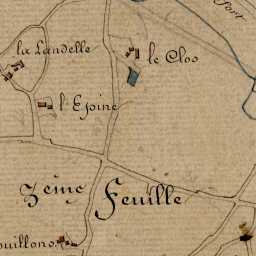 Port
la Landelle
le Clos
l'Epine
3eme Feuille
ouillons